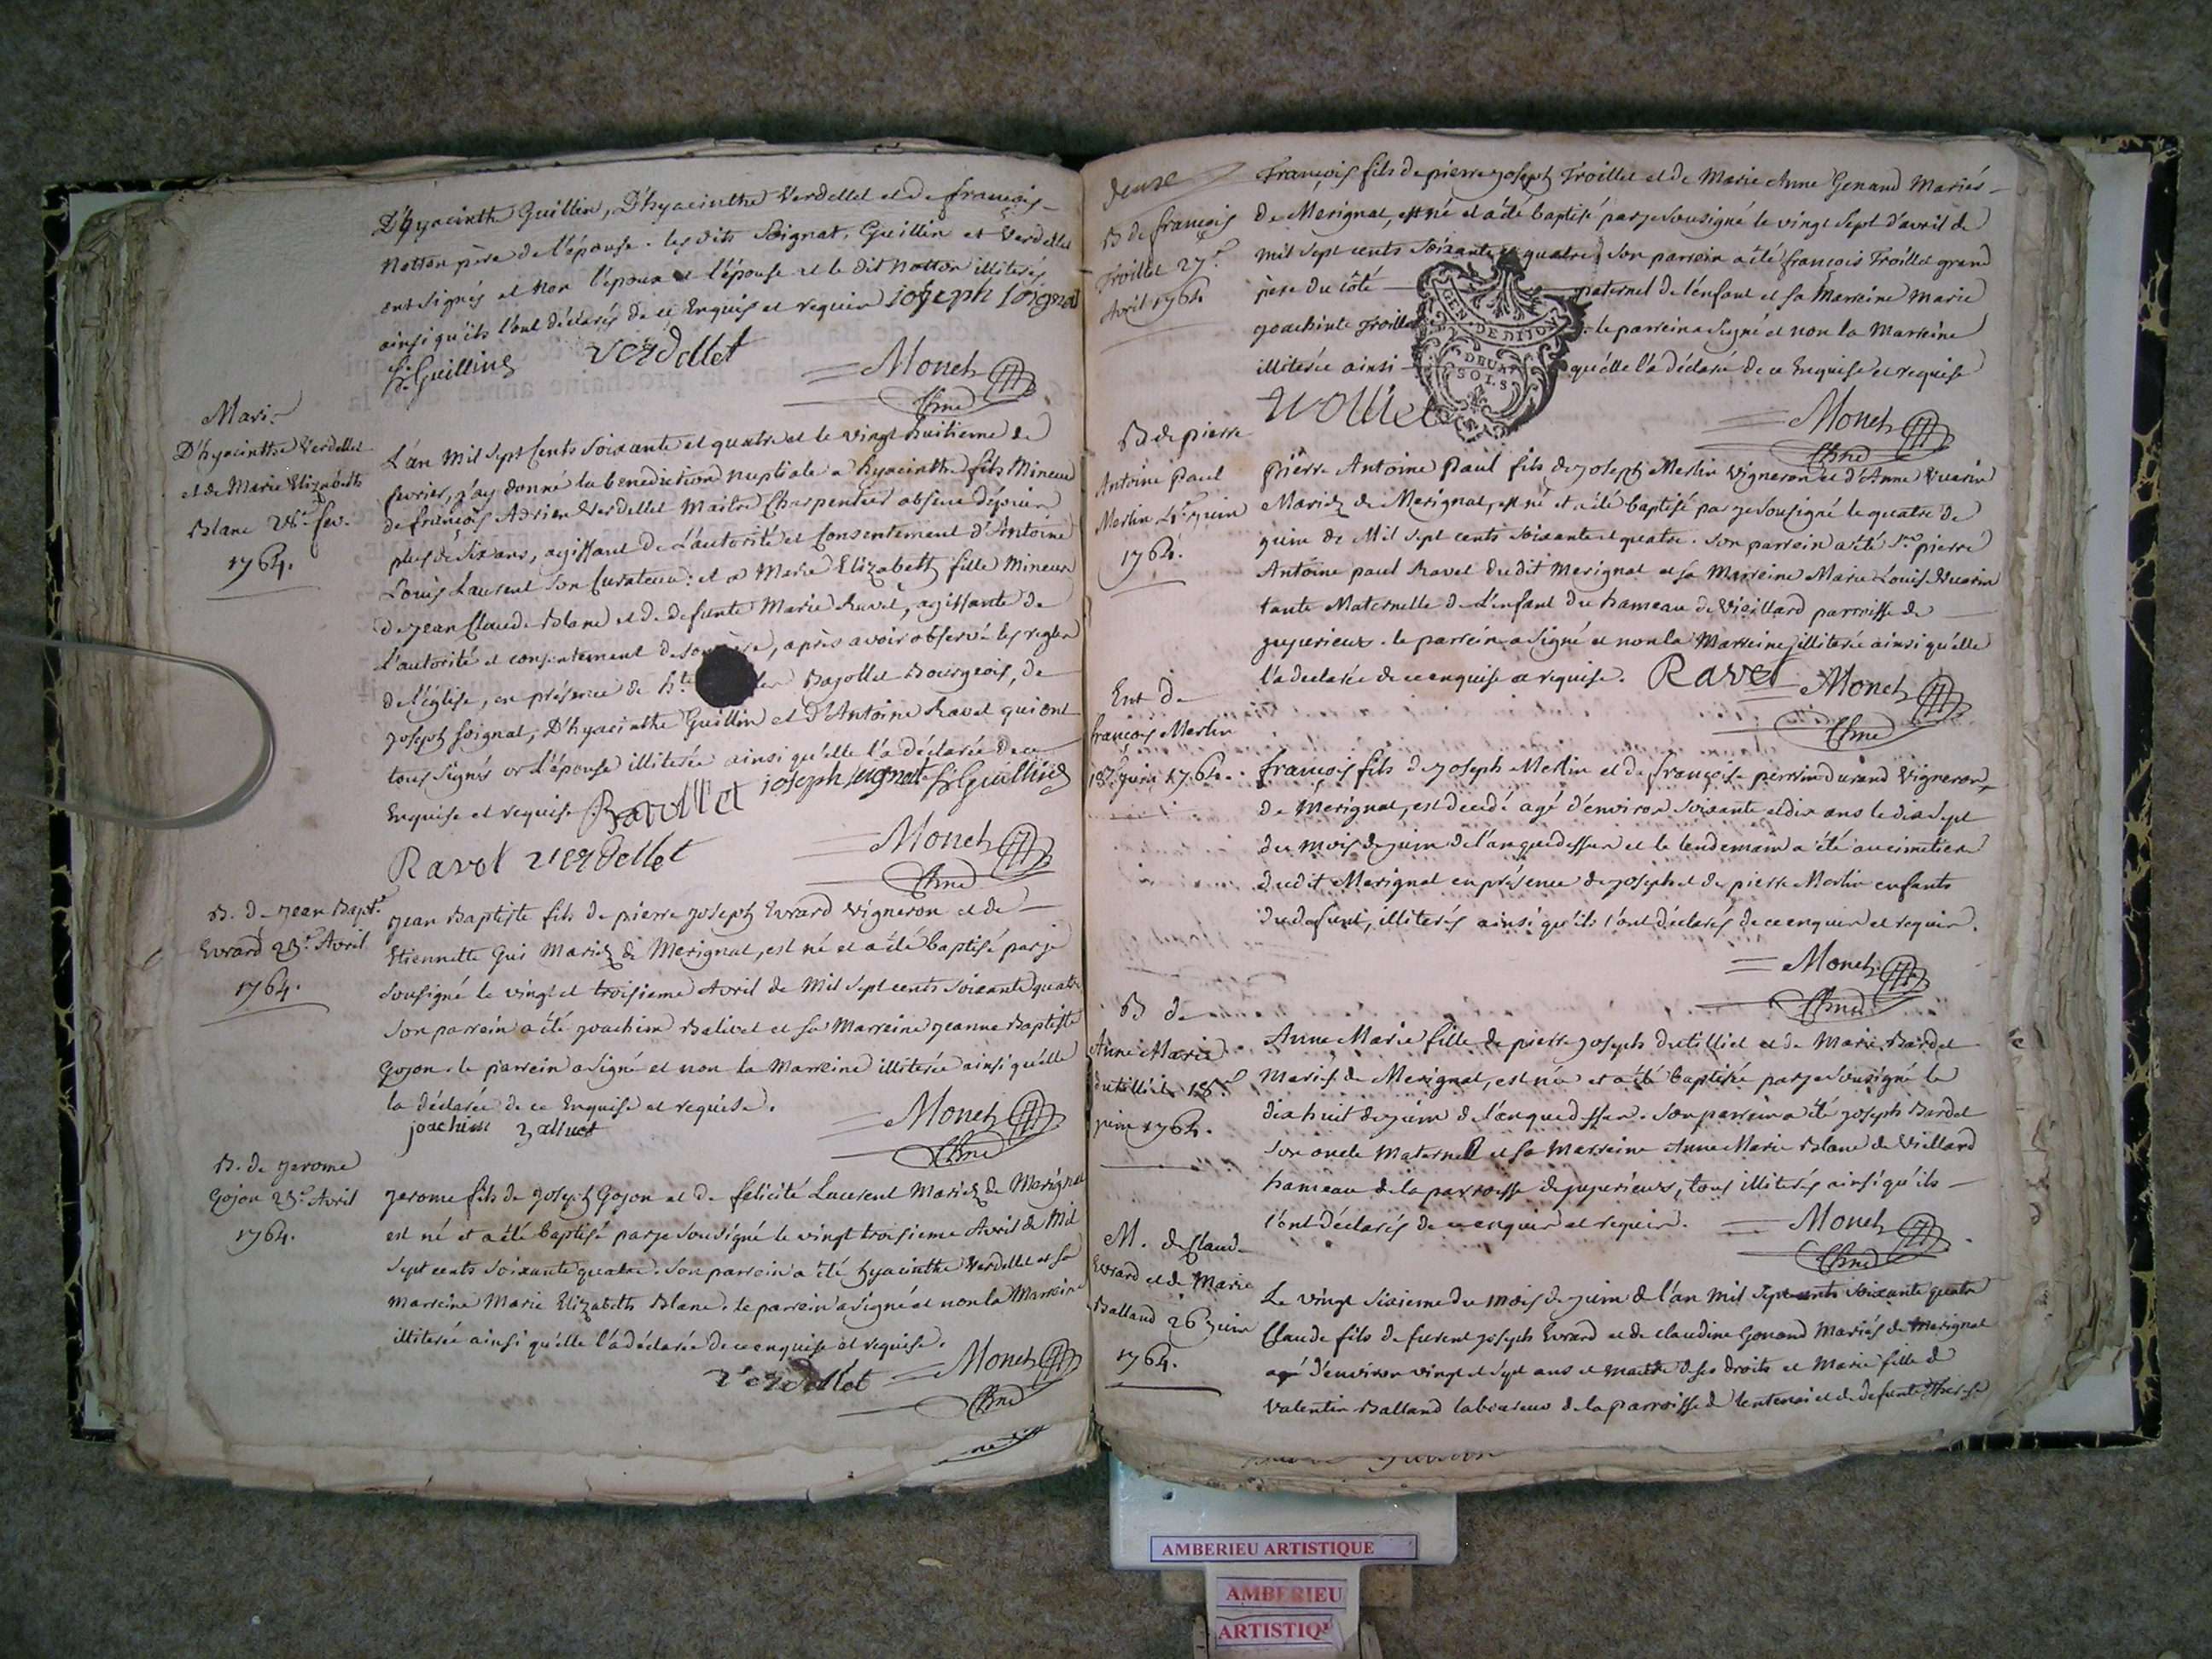 D'hyacinthe Guillin, D'hyacinthe Verdellet et de françois
Notton père de l'épouse. les dits Soignat, Guillin et Verdellet
ont signés et non l'époux et l'épouse et le dit Notton illiterés
ainsi qu'ils l'ont déclarés de ce Enquis et requis joseph soignat
h Guillin verdellet
Monet
Curé
Mari.
D'hyacinthe Verdellet
et de Marie Elizabeth
Blanc 28.e fev.
1764.
L'an Mil Sept Cents Soixante et quatre et le vingt huitieme de
fevrier, j'ay donné la benediction nuptiale a hyacinthe fils Mineur
de françois Adrien Verdellet Maitre Charpentier absent dépuis
plus de six ans, agissant de L'autorité et Consentement d'Antoine
Louis Laurent son Curateur: et a Marie Elizabeth fille Mineure
de jean Claude Blanc et de defunte Marie Ravel, agissante de
l'autorité et consentement de son père, après avoir observé les regles
de l'église, en présence de Bajollet Bourgeois, de
joseph soignat, D'hyacinthe Guillin et d'Antoine Ravel qui ont
tous signés et l'épouse illiterée ainsi qu'elle l'a déclarée de ce
Enquise et requise. Bajollet joseph soignat h Guillin
Ravel verdellet
Monet
Curé
B. de jean Bapt.e
Evrard 23.e Avril
1764.
jean Baptiste fils de pierre joseph Evrard vigneron et de
Etiennette Gui Mariez de Merignat, est né et a été baptisé par je
sousigné le vingt et troisieme Avril de Mil Sept cents soixante quatre
son parrein a été joachim Balivet et sa Marreine jeanne Baptiste
Gojon. le parrein a signé et non la Marreine illiterée ainsi qu'elle
la déclarée de ce Enquise et requise.
joachim balivet
Monet
Curé
B. de jerome
Gojon 23.e Avril
1764.
jerome fils de joseph Gojon et de felicité Laurent Mariez de Merignat
est né et a été baptisé par je sousigné le vingt troisieme Avril de Mil
Sept cents soixante quatre. son parrein a été hyacinthe Verdellet et sa
marreine Marie Elizabeth Blanc. le parrein a signé et non la Marreine
illiterée ainsi qu'elle l'a déclarée de ce enquise et requise.
verdellet
Monet
Curé
deuxe
B de françois
Troillet 27.e
Avril 1764
François fils de pierre joseph Troillet et de Marie Anne Genand Mariés
de Merignat, est né et a été baptisé par je sousigné le vingt sept d'avril de
mil sept cents soixante et quatre. son parrein a été françois Troillet grand
père du côté paternel de l'enfant et sa Marreine Marie
joachinte Troillet. le parrein a signé et non la Marreine
illiterée ainsi qu'elle l'a déclaré de ce Enquise et requise
GEN. DE DIJON
DEUX
SOLS
trolliet
Monet
Curé
B de pierre
Antoine Paul
Merlin 4.e juin
1764.
pierre Antoine Paul fils de joseph Merlin Vigneron et d'Anne Vuarin
Mariez de Merignat, est né et a été baptisé par je sousigné le quatre de
juin de Mil sept cents soixante et quatre. son parrein a été S.r pierre
Antoine paul Ravel du dit Merignat et sa Marreine Marie Louise Vuarin
tante Maternelle de L'enfant du hameau de Vieillard parroisse de
jujurieux. le parrein a signé et non la Marreine illiterée ainsi qu'elle
l'a declarée de ce enquise et requise. Ravel
Monet
Curé
Ent. de
françois Merlin
18.e juin 1764.
françois fils de joseph Merlin et de françoise perrin durand Vigneron
de Merignat, est decedé agé d'environ soixante et dix ans le dix sept
du mois de juin de l'an que dessus et le lendemain a été au cimetiere
dudit Merignat en présence de joseph et de pierre Merlin enfants
du defunt, illiterés ainsi qu'ils l'ont déclarés de ce enquis et requis.
Monet
Curé
B de
Anne Marie
dutilliet 18.e
juin 1764.
Anne Marie fille de pierre joseph dutilliet et de Marie Bardet
Mariés de Merignat, est née et a été baptisée par je sousigné le
dix huit de juin de l'an que dessus. son parrein a été joseph Bardet
son oncle Maternel et sa Marreine Anne Marie Blanc de Viellard
hameau de la parroisse de jujurieux, tous illiterés ainsi qu'ils
l'ont déclarés de ce enquis et requis.
Monet
Curé
M. de Claude
Evrard et de Marie
Balland 26 juin
1764.
Le vingt sixieme du mois de juin de l'an mil sept cents soixante quatre
Claude fils de furent joseph Evrard et de claudine Gonand Mariés de Merignat
agé d'environ vingt et sept ans et maitre de ses droits et Marie fille de
Valentin Balland laboureur de la parroisse de lentenai et de defunte therese
AMBERIEU ARTISTIQUE
AMBERIEU
ARTISTIQ